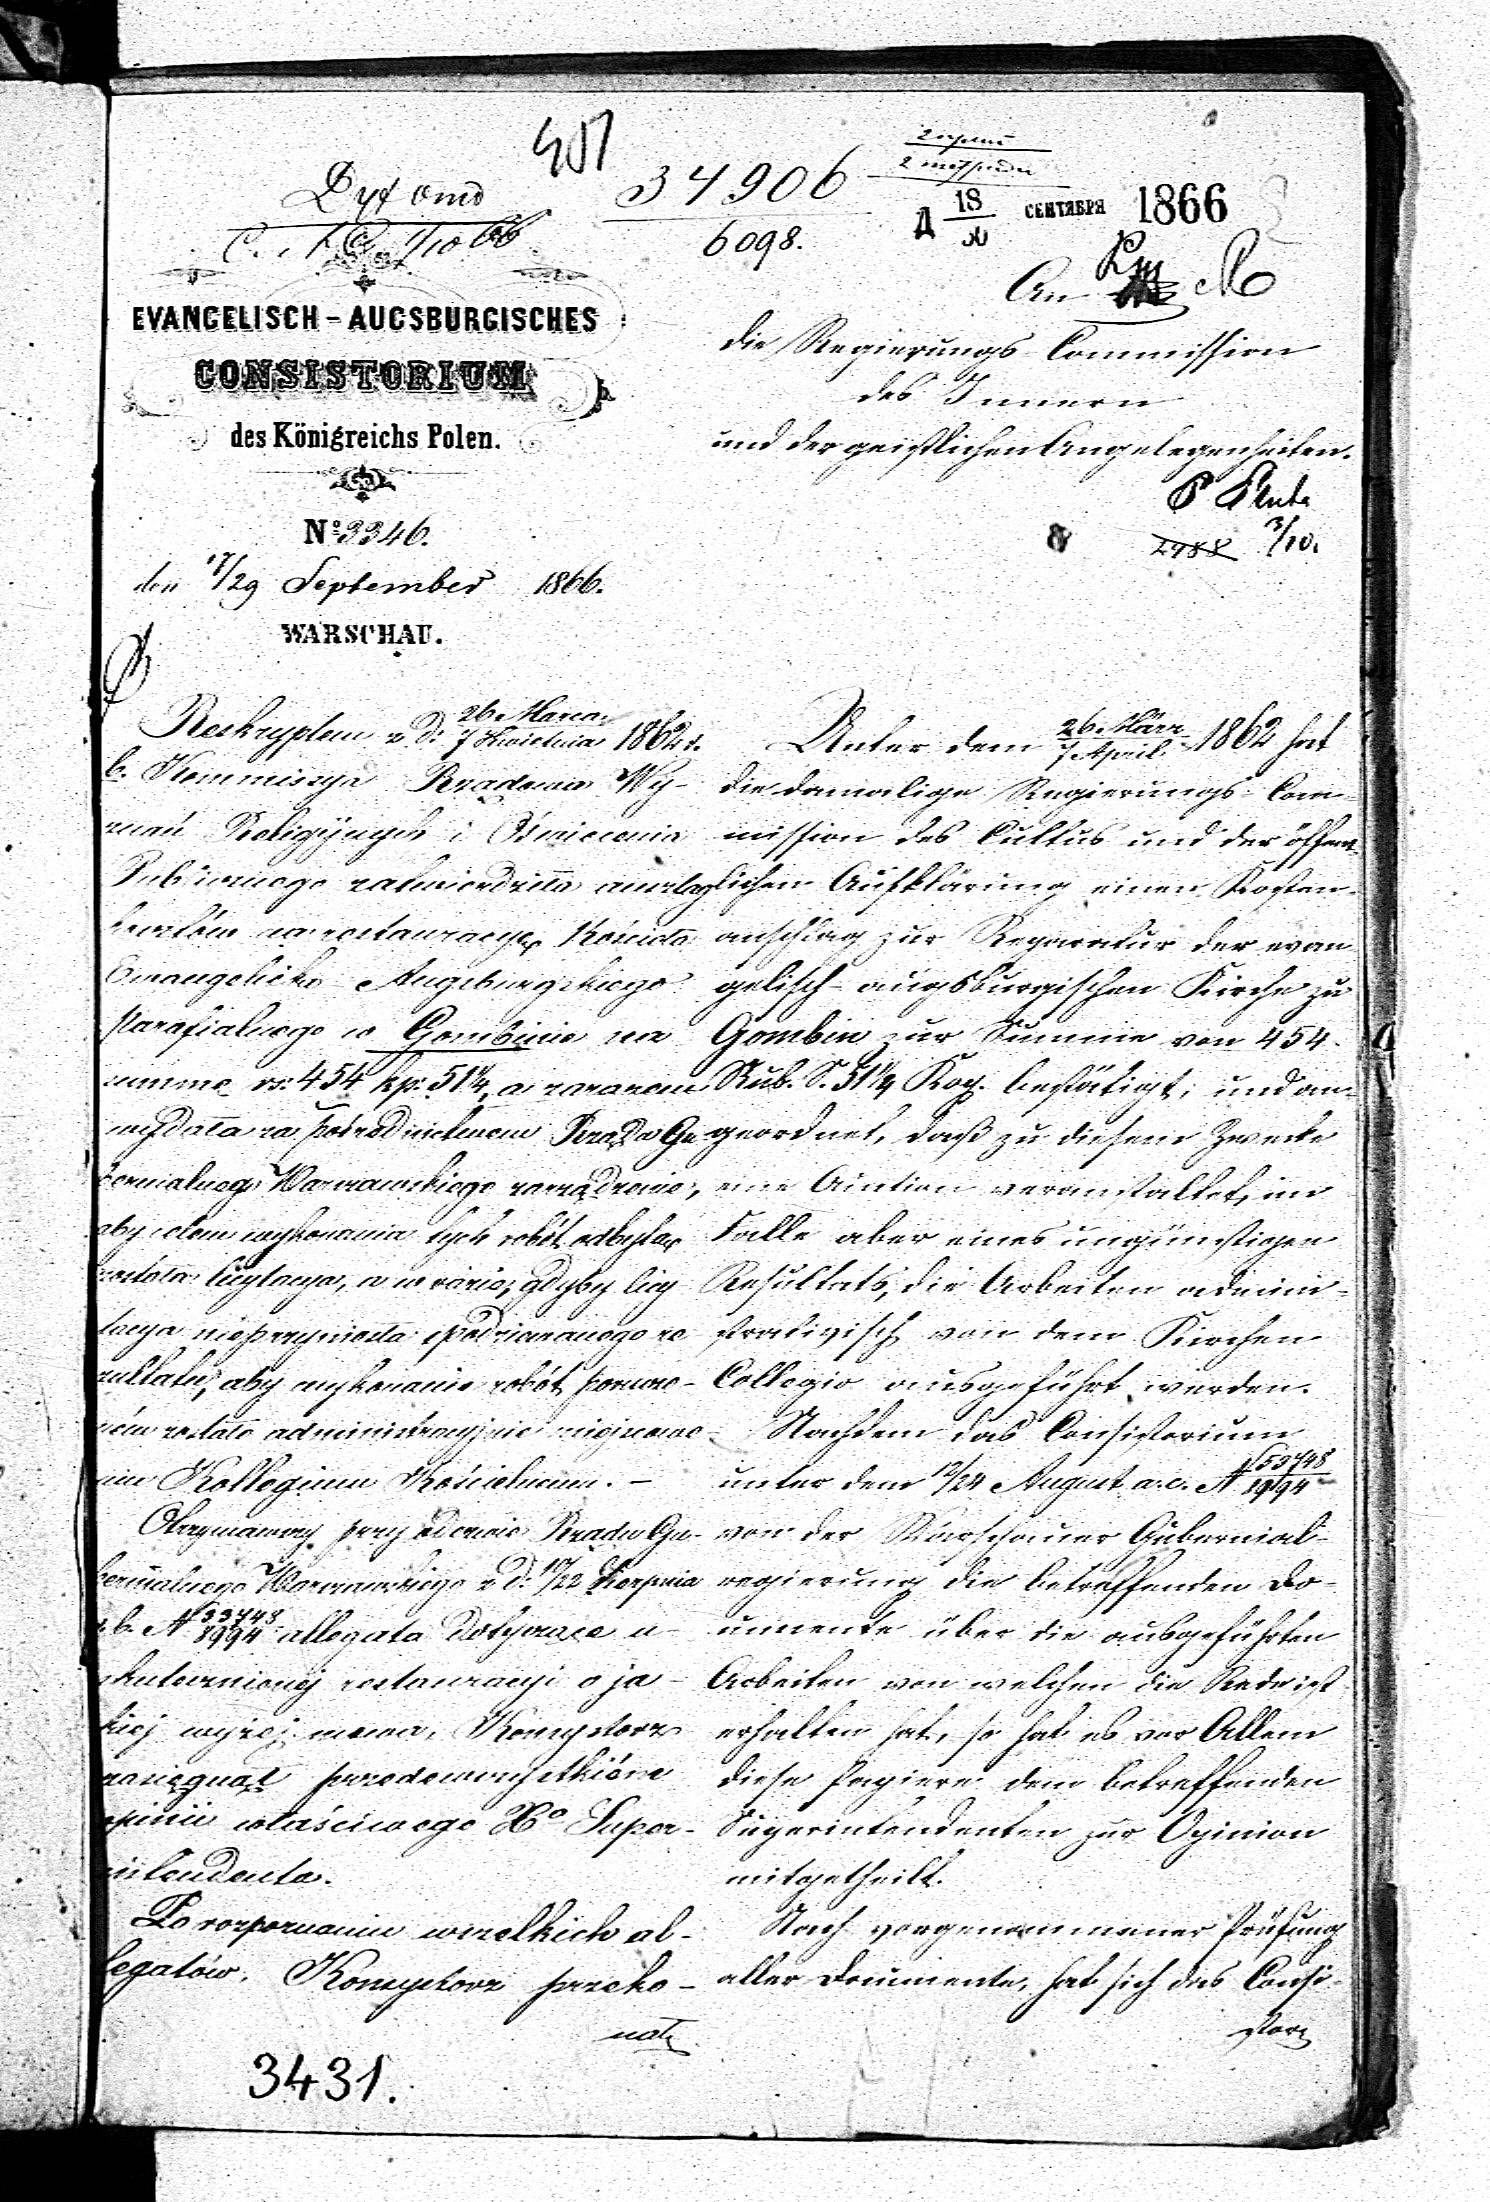 34906
6098.
18
30
СЕНТЯБРЯ 1866
EVANGELISCH-AUGSBURGISCHES
CONSISTORIUM
des Königreichs Polen.
No 3346.
den 17/29 September 1866.
WARSCHAU.
An
die Regierungs-Commission
des Innern
und der geistlichen Angelegenheiten.
2988 3/10.
Reskryptem z d: 26 Marca / 7 Kwietnia 1862 r.
b. Kommissya Rządowa Wy-
znań Religijnych i Oświecenia
Publicznego zatwierdziła anszlag
kosztów na restauracyę Kościoła
Ewangelicko-Augsburgskiego
parafialnego w Gombinie na
summę rs: 454 kp: 51 1/4, a zarazem
wydała za pośrednictwem Rządu Gu-
bernialnego Warszawskiego zarządzenie,
aby celem wykonania tych robót odbytą
została licytacya, a w razie, gdyby licy-
tacya nieprzyniosła spodziewanego re-
zultatu, aby wykonanie robót poruczo-
ném zostało administracyjnie miejscowe-
mu Kollegium Kościelnemu. –
Otrzymawszy przy odezwie Rządu Gu-
bernialnego Warszawskiego z d. 10/22 Sierpnia
r. b. N 53748/1994 allegata dotyczące u-
skutecznionéj restauracyi o ja-
kiej wyżéj mowa, Konsystorz
zasięgnął przedewszystkiém
opinii właściwego Xo Super-
intendenta.
Po rozpoznaniu wszelkich al-
legatów, Konsystorz przeko-
nał
Unter dem 26 März / 7 April 1862 hat
die damalige Regierungs-Com-
mission des Cultus und der öffent-
lichen Aufklärung einen Kosten-
anschlag zur Reparatur der evan-
gelisch-augsburgischen Kirche zu
Gombin zur Summe von 454.
Rub. S. 51 1/4 Kop. bestätigt, und an-
geordnet, daß zu diesem Zwecke
eine Auction veranstaltet, im
Falle aber eines ungünstigen
Resultats, die Arbeiten admini-
strativisch von dem Kirchen
Collegio ausgeführt werden.
Nachdem das Consistorium
unter dem 12/24 August a. c. N 53748/1994
von der Warschauer Gubernial-
regierung die betreffenden Do-
cumente über die ausgeführten
Arbeiten von welchen die Rede ist
erhalten hat, so hat es vor Allem
diese Papiere dem betreffenden
Superintendenten zur Opinion
mitgetheilt.
Nach vorgenommener Prüfung
aller Documente, hat sich das Consi-
stor
3431.